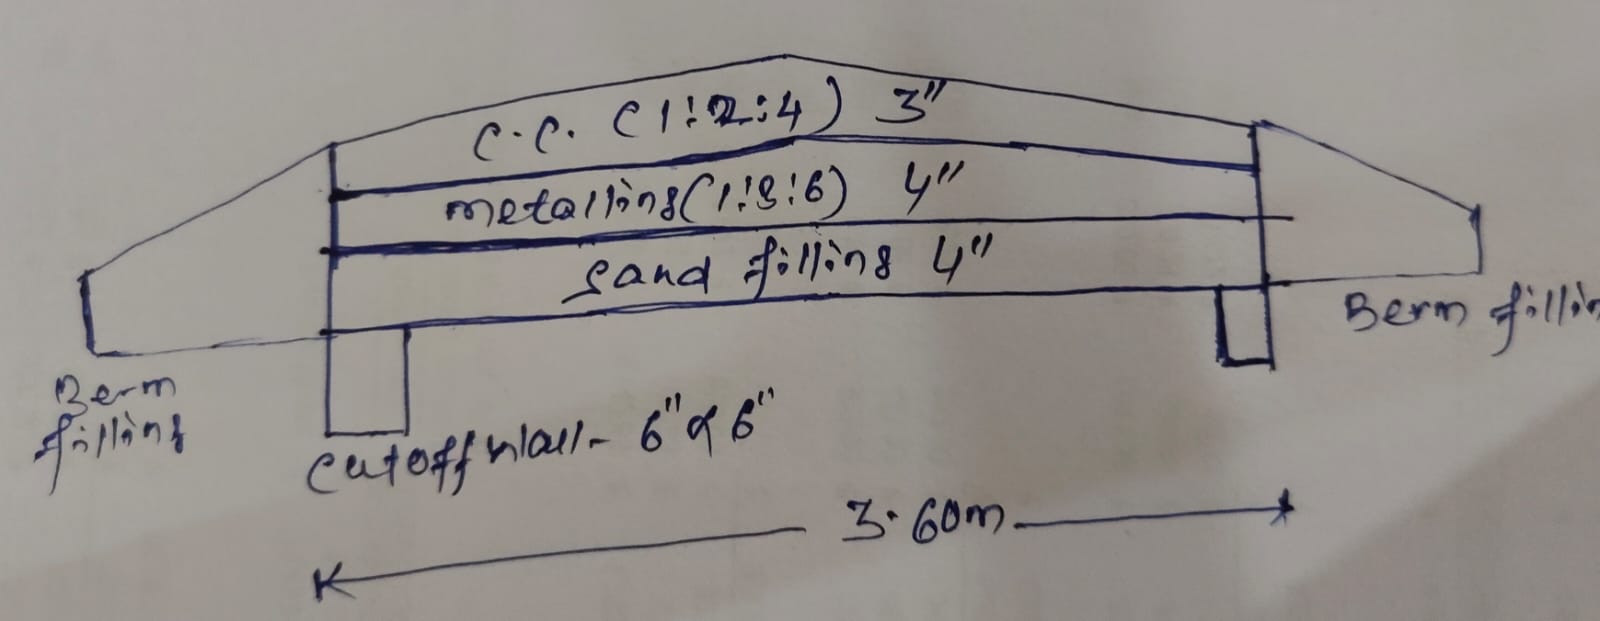 C.C. (1:2:4) 3"
metalling (1:3:6) 4"
sand filling 4"
Berm filling
Berm
filling
cutoff wall - 6" x 6"
3.60m